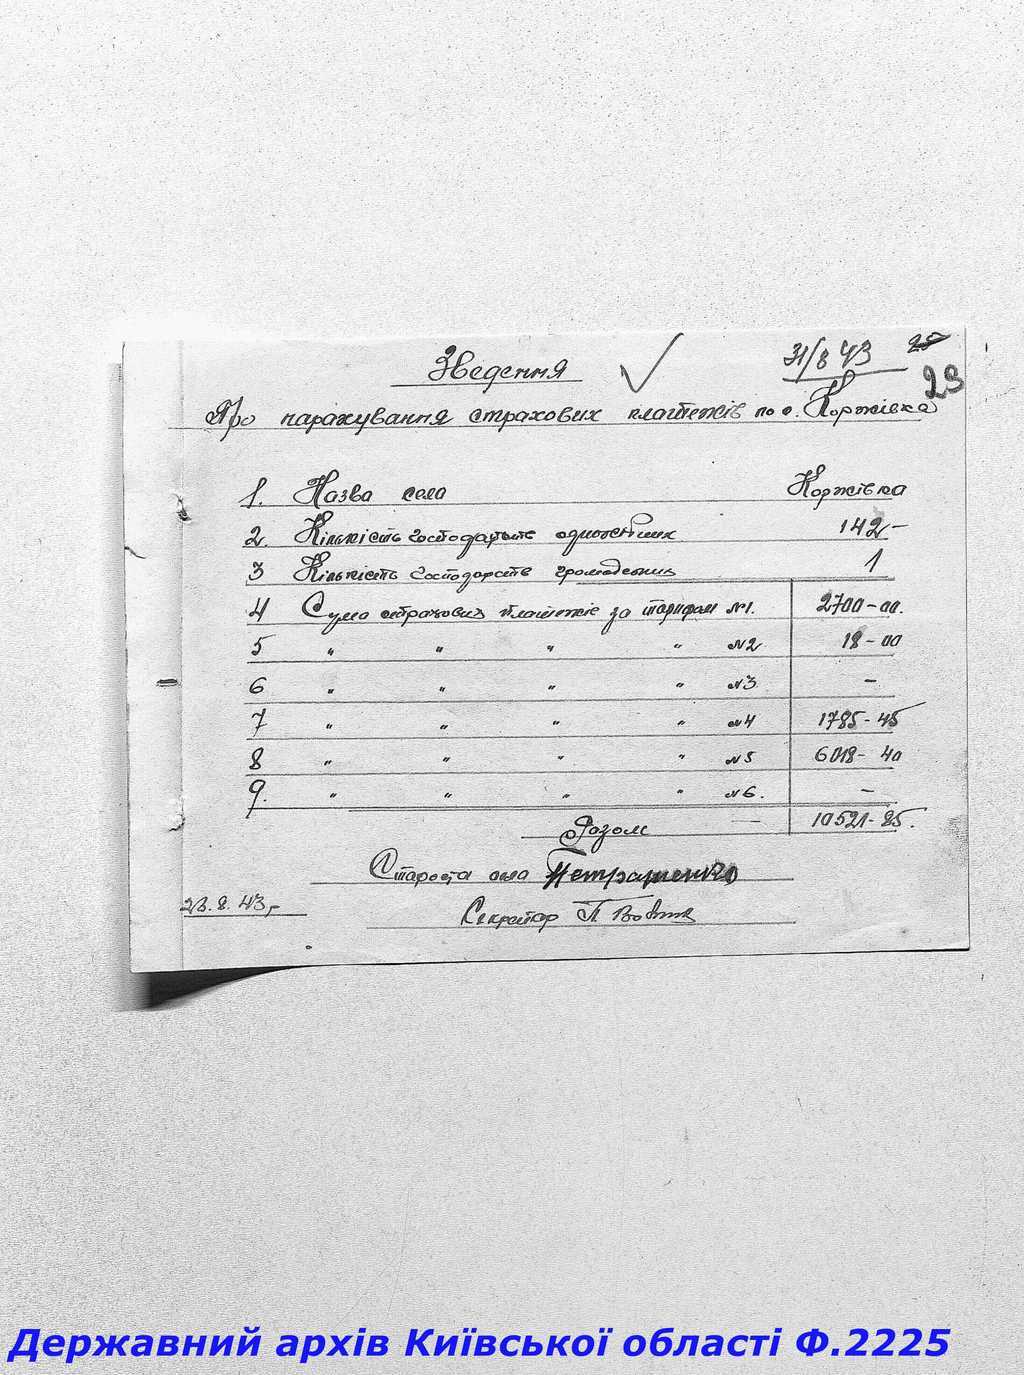 Зведення
31/8 43
25
23
Про нарахування страхових платежів по с. Коржівка
1. Назва села Коржівка
2. Кількість господарств 142-
3 Кількість господарств громадських 1
4 Сума страхових платежів за тарифом №1. 2700-00.
5 " " " " №2 18-00
6 " " " " №3 -
7 " " " " №4 1785-45
8 " " " " №5 6018-40
9. " " " " №6. -
Разом 10521-85.
Староста села Петрашенко
23.8.43
Секретар П
Державний архів Київської області Ф.2225